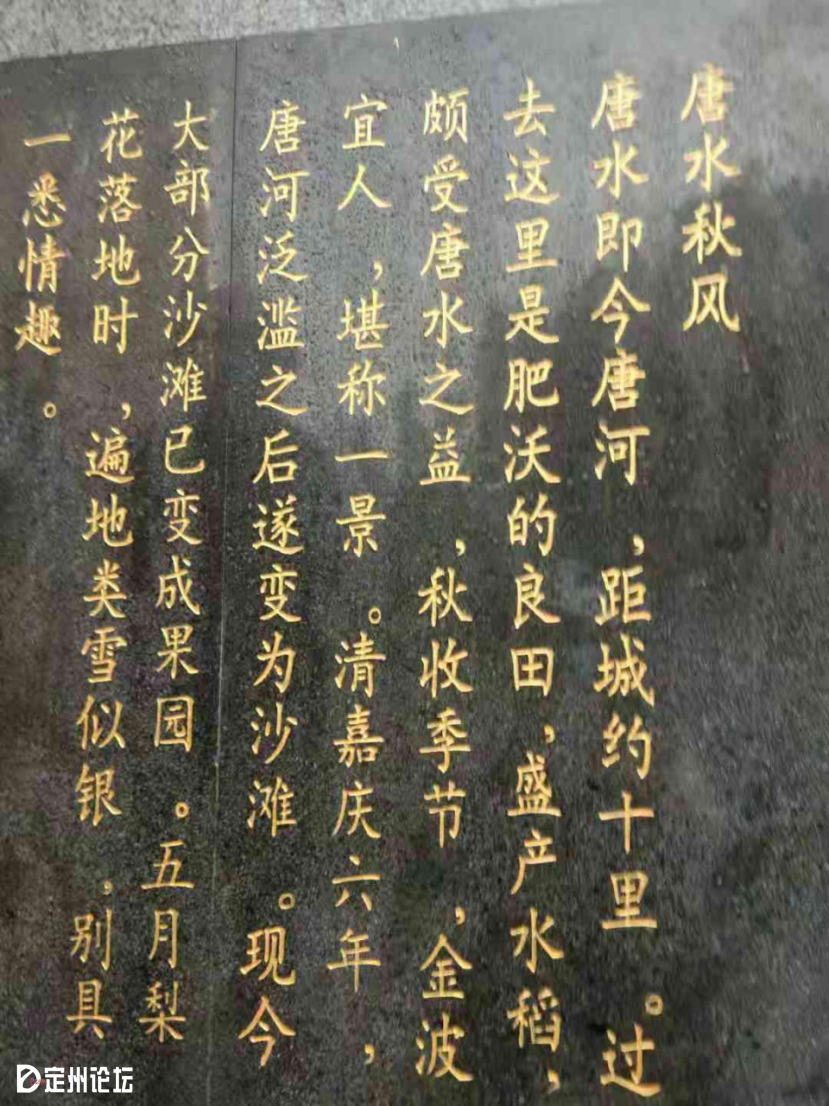 唐水秋风
唐水即今唐河，距城约十里。过
去这里是肥沃的良田，盛产水稻，
颇受唐水之益，秋收季节，金波
宜人，堪称一景。清嘉庆六年，
唐河泛滥之后遂变为沙滩。现今
大部分沙滩已变成果园。五月梨
花落地时，遍地类雪似银，别具
一悉情趣。
定州论坛